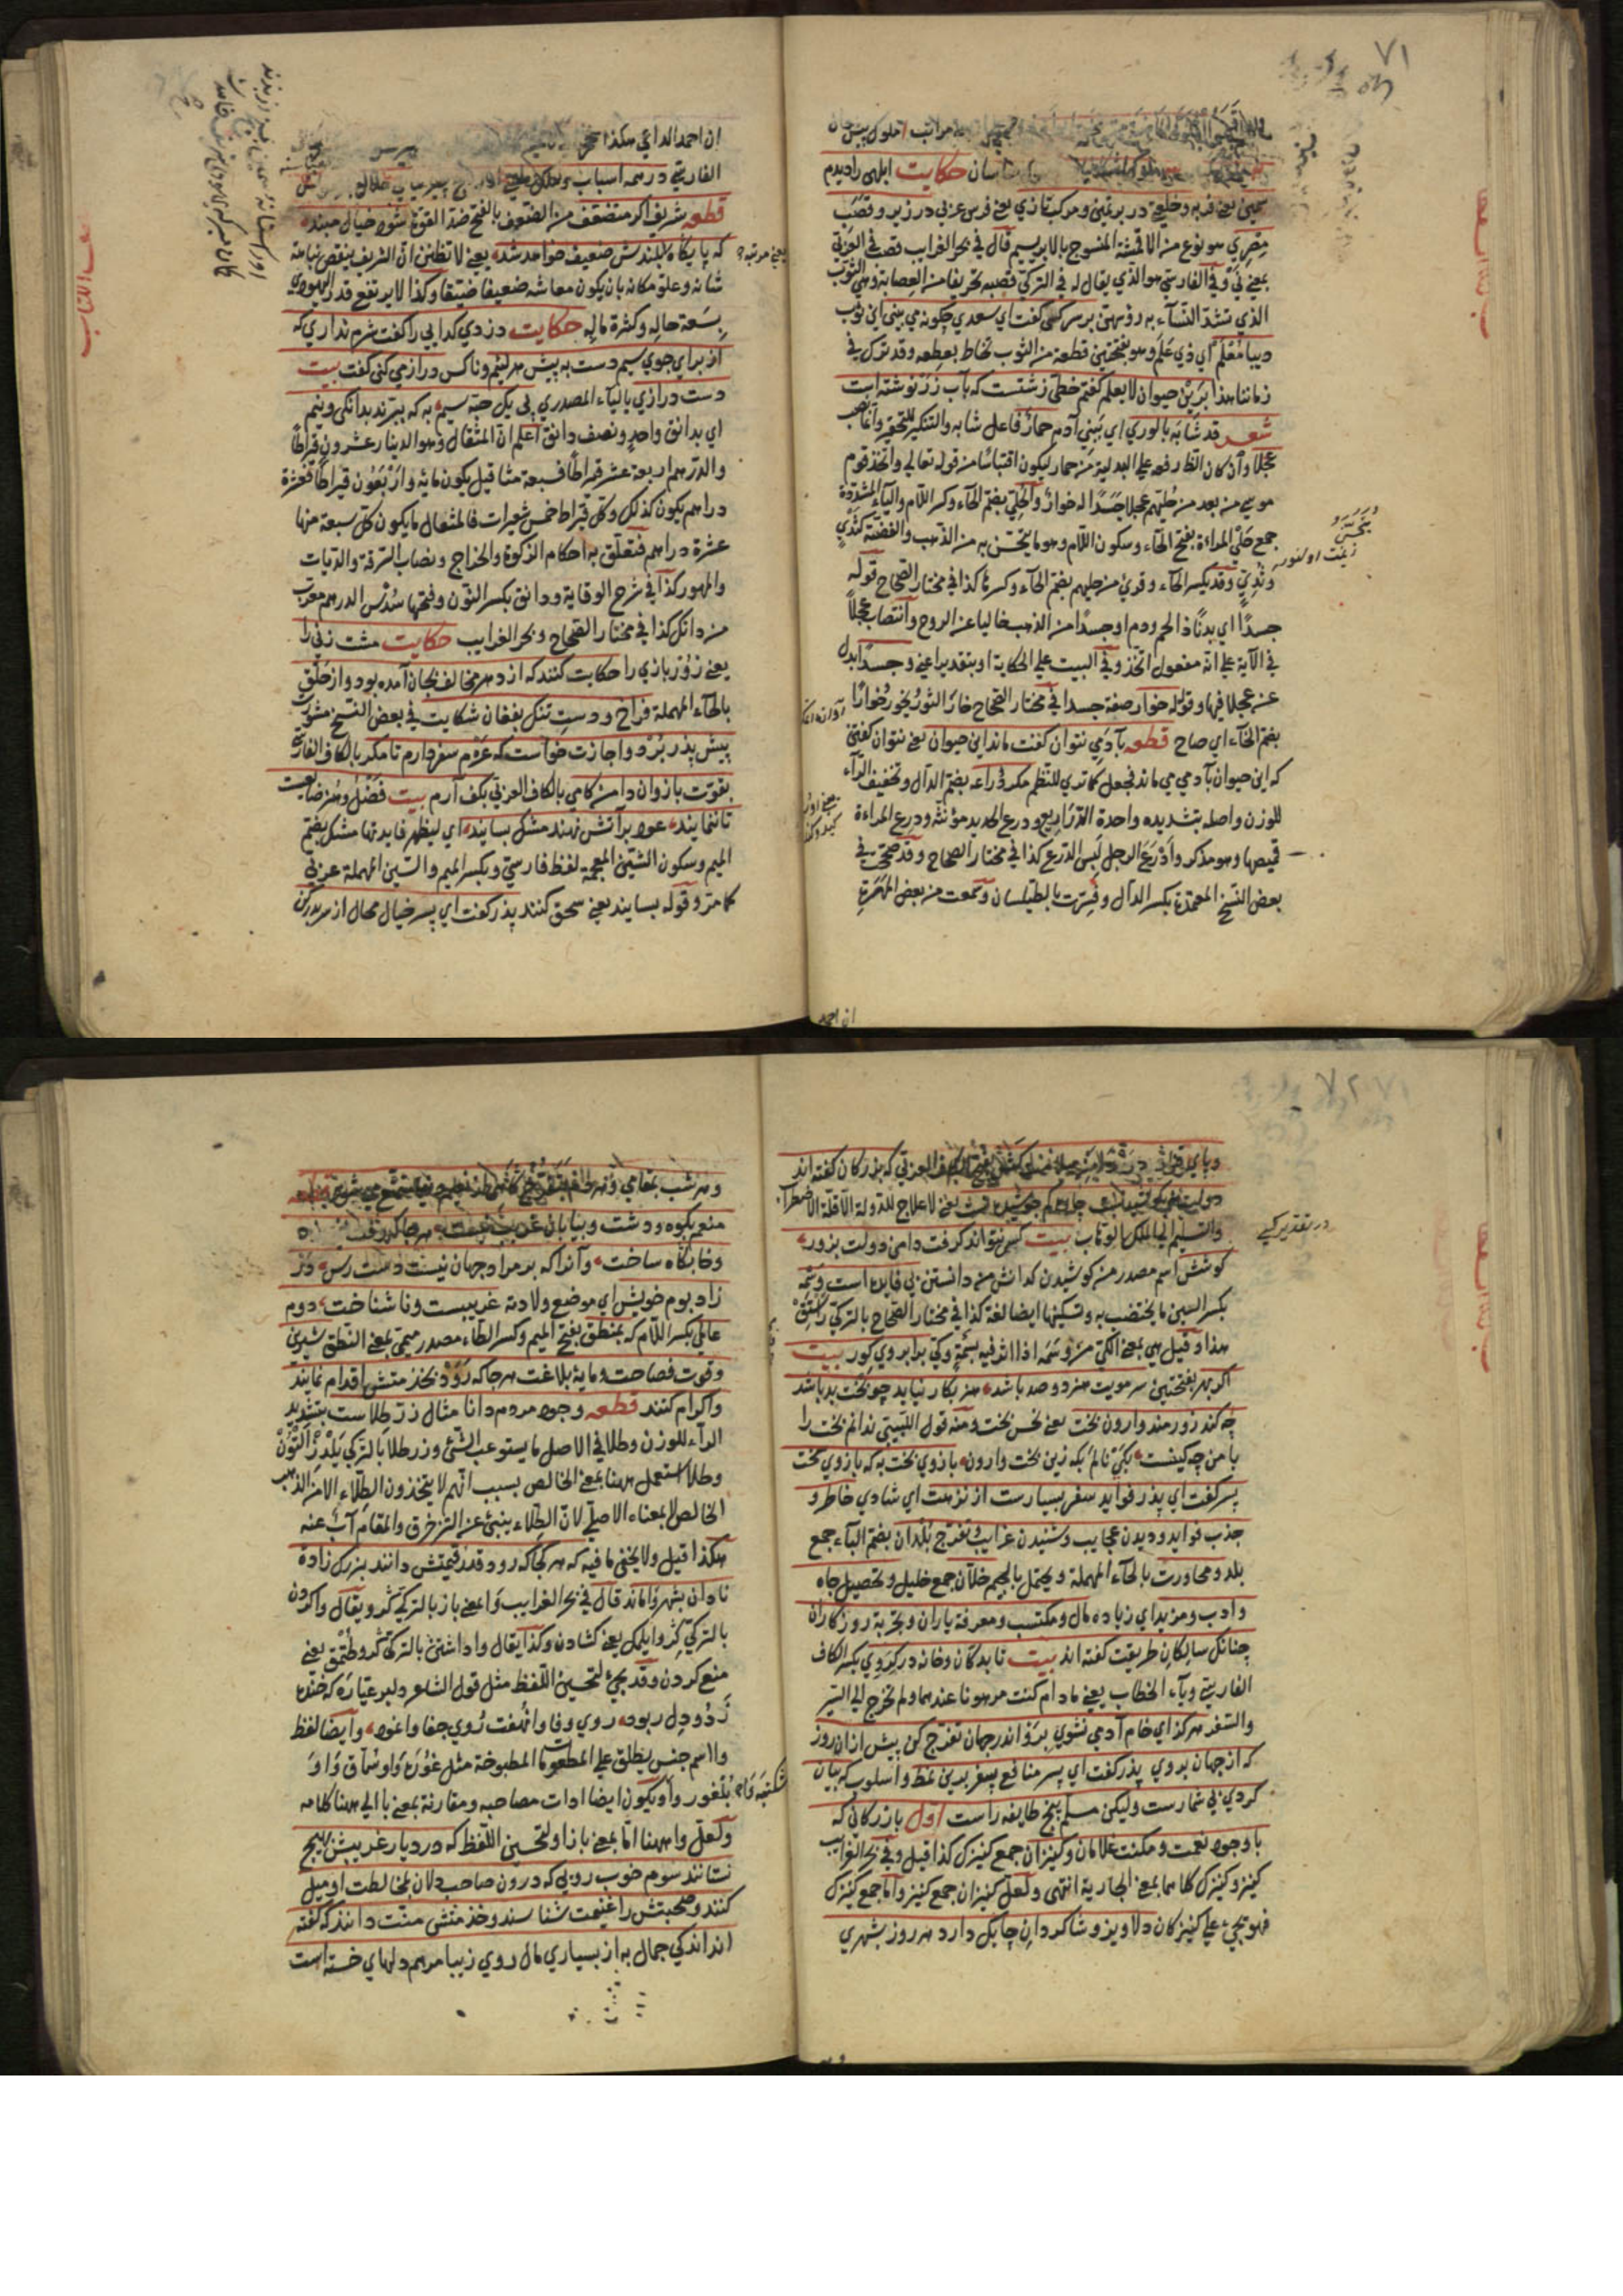 ٧١
مراتب املوك بيش خان
حكايت ابلهى را ديدم
سمين يعنى فربه و خلعتى در بر ثمين و مركب تازي يعنى فرس عربى در زير و قصب
مصري هو نوع من الاقمشة المنسوج بالابريسم قال في بحر الغرايب قصب في العربي
بمعنى ني و في الفارسي هو الذي يقال له في التركي قصبه تحريفا من العصابة وهي الثوب
الذي تشد النساء به رؤسهن بر سر كسى كفت اي سعدي چكونه مي بيني اين ثوب
ديبا معلم اي ذي علم وهو بفتحتين قطعة من الثوب تخاط بعطفه وقد ترك في
زماننا هذا برين حيوان لا يعلم كفتم خطي زشتست كه بآب زر نوشته است
شعر قد شابه بالوري اي ببني آدم حمار فاعل شابه والتنكير للتحقير وانتصب
عجلا وان كان الظ رفعه على البدلية من حمار ليكون اقتباسا من قوله تعالى واتخذ قوم
موسى من بعد من حليهم عجلا جسدا له خوار والحلي بضم الحاء وكسر اللام والياء المشددة
جمع حلي المراءة بفتح الحاء وسكون اللام وهو ما يتحسن به من الذهب والفضة كثدي
وثدي وقد يكسر الحاء وقرئ من حليهم بضم الحاء وكسرها كذا في مختار الصحاح قوله
جسدا اي بدنا ذا لحم ودم او جسدا من الذهب خاليا عن الروح وانتصاب عجلا
في الآية على انه مفعول اتخذ وفي البيت على الحكاية او بتقدير اعني وجسدا بدل
عن عجلا فيها وقوله خوار صفة جسدا في مختار الصحاح خار الثور يخور خوارا
بضم الخاء اي صاح قطعه بآدمي نتوان كفت ماند اين حيوان يعنى نتوان كفتن
كه اين حيوان بآدمي مي ماند فجعل كما تري للنظم مكر دراعه بضم الدال وتخفيف الراء
للوزن واصله بتشديده واحدة الدراريع ودرع الحديد مؤنثه ودرع المراءة
قميصها وهو مذكر وادرع الرجل لبس الدرع كذا في مختار الصحاح وقد صحح في
بعض النسخ المعتمدة بكسر الدال وفسرت بالطيلسان وسمعت من بعض المهرة
يتحسن
زينت اولنور
ان احمد
ان احمد الداعي هكذا
الفارسي در همه اسباب وملك
قطعه شريف اكر متضعف من الضعف بالفتح ضد القوة شود خيال مبند
كه پايكاه بلندش ضعيف خواهد شد يعنى لا تظنن ان الشريف ينقص نباهة
شانه وعلو مكانه بان يكون معاشه ضعيفا ضيقا وكذا لا يرتفع قدر اليهودي
بسعة حاله وكثرة ماله حكايت دزدي كدايى را كفت شرم نداري كه
از براي جوي سيم دست به پيش هر لئيم وناكس دراز مي كنى كفت بيت
دست درازي بالياء المصدري پى يك حبه سيم به كه ببرند بدانكى ونيم
اي بدانق واحد ونصف دانق اعلم ان المثقال وهو الدينار عشرون قيراطا
والدرهم اربعة عشر قيراطا فسبعة مثاقيل يكون مائة واربعون قيراطا فعشرة
دراهم يكون كذلك وكل قيراط خمس شعيرات فالمثقال ما يكون كل سبعة منها
عشرة دراهم فتعلق به احكام الزكوة والخراج ونصاب السرقة والديات
والمهور كذا في شرح الوقاية ودانق بكسر النون وفتحها سدس الدرهم معرب
من دانك كذا في مختار الصحاح وبحر الغرايب حكايت مشت زنى را
يعنى زوربازي را حكايت كنند كه از دهر مخالف بجان آمده بود واز حلق
بالحاء المهملة فراخ ودست تنك بفغان شكايت في بعض النسخ مشورت
پيش پدر برد واجازت خواست كه عزم سفر دارم تا مكر بالكاف الفارسي
بقوت بازوان دامن كامي بالكاف العربي بكف آرم بيت فضل وهنر ضايعست
تا ننمايند عود بر آتش نهند مشك بسايند اي ليظهر فايدتها مشك بضم
الميم وسكون الشين المعجمة لفظ فارسي وبكسر الميم والسين المهملة عربي
كما مر وقوله بسايند يعنى سحق كنند پدر كفت اي پسر خيال محال از سر بدر كن
يعنى مرتبه
٧٢
كه بزركان كفته اند
يعنى لا علاج للدولة الا قلة الاضطراب
والتسليم الى الملك الوهاب بيت كس نتواند كرفت دامن دولت بزور
كوشش اسم مصدر من كوشيدن كدانش من دانستن بى فايده است وسمه
بكسر السين ما يختضب به وتسكينها ايضا لغة كذا في مختار الصحاح بالتركي
هذا وقيل هي بمعنى الكي من وسمه اذا اثر فيه بسمة وكي بر ابروي كور بيت
اكر بهر بفتحتين سر مويت هنر دو صد باشد هنر بكار نيايد چو بخت بد باشد
چه كند زورمند وارون بخت يعنى نحس بخت ومنه قول اللبيبي ندانم بخت را
با من چه كينست بكى نالم بكه زين بخت وارون بازوي بخت به كه بازوي سخت
پسر كفت اي پدر فوايد سفر بسيارست از نزهت اي شادي خاطر و
جذب فوايد وديدن عجايب وشنيدن غرايب وتفرج بلدان بضم الباء جمع
بلد ومحاورت بالحاء المهملة ويحتمل بالجيم خلان جمع خليل وتحصيل جاه
وادب ومزيد اي زياده مال ومكتسب ومعرفة ياران وتجربة روزكاران
چنانك سالكان طريقت كفته اند بيت تا بدكان وخانه دركروي بكسر الكاف
الفارسي وياء الخطاب يعنى ما دام كنت مرهونا عندهما ولم تخرج الى السير
والسفر هركز اي خام آدمي نشوي برو اندر جهان تفرج كن پيش از ان روز
كه از جهان بروي پدر كفت اي پسر منافع سفر بدين نمط واسلوب كه بيان
كردي بى شمارست وليكن مسلم پنج طايفه راست اول بازركانى كه
با وجود نعمت ومكنت غلامان وكنيزان جمع كنيزك كذا قيل وفي بحر الغرايب
كنيز وكنيزك كلاهما بمعنى الجارية انتهى ولعل كنيزان جمع كنيز واما جمع كنيزك
فهو يجئ على كنيزكان دلاويز وشاكردان چابك دارد هر روز بشهري
وهر شب بمقامي
منعم بكوه ودشت وبيابان غريب نيست هر جا كه رفت
وخابكاه ساخت وآنرا كه بر مراد جهان نيست دست رس در
زاد بوم خويش اي موضع ولادته غريبست وناشناخت دوم
عالمى بكسر اللام كه بمنطق بفتح الميم وكسر الطاء مصدر ميمي بمعنى النطق شيرين
وقوت فصاحت ومايه بلاغت هر جا كه رود بخدمتش اقدام نمايند
واكرام كنند قطعه وجود مردم دانا مثال زر طلاست بتشديد
الراء للوزن وطلا في الاصل ما يستوعب الشئ وزر طلا بالتركي
وطلا استعمل ههنا بمعنى الخالص بسبب انهم لا يتخذون الطلاء الا من الذهب
الخالص لا بمعناه الاصلي لان الطلاء ينبئ عن التزخرق والمقام آب عنه
هكذا قيل ولا يخفى ما فيه كه هر كجا كه رود قدر قيمتش دانند بزرك زاده
نادان بشهر وا ماند قال في بحر الغرايب وا بمعنى باز بالتركي كرو ويقال واكردن
بالتركي كرو ايلمك يعنى كشادن وكذا يقال واداشتن بالتركي كرو طتمق يعنى
منع كردن وقد يجئ لتحسين اللفظ مثل قول الشاعر دلبر عياره كه خنده
زد ودل ربود روي وفا وانهفت روي جفا وانمود وايضا لفظ
وا اسم جنس يطلق على المطعومات المطبوخة مثل غوره وا وسماق وا و
بلغور وا ويكون ايضا ادات مصاحبه ومقارنة بمعنى با الى ههنا كلامه
ولعل وا ههنا اما بمعنى باز او لتحسين اللفظ كه در ديار غريبش بهيچ
نستانند سوم خوب رويى كه درون صاحب دلان بمخالطت او ميل
كنند وصحبتش را غنيمت شناسند وخدمتش منت دانند كه كفته
اند اندكي جمال به از بسياري مال روي زيبا مرهم دلهاي خسته است